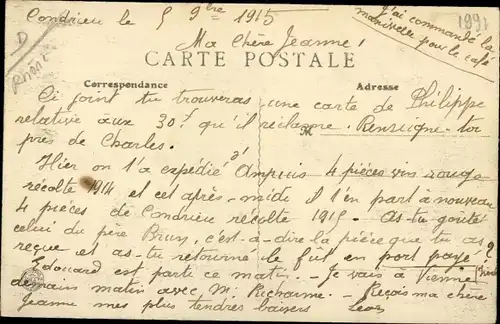 Condrieu le 5 9bre 1915
j'ai commandé la
manivelle pour le café
1991
D
Ma Chère Jeanne,
CARTE POSTALE
Correspondance
Adresse
Ci joint tu trouveras une carte de Philippe
relative aux 30f qu'il réclame. Renseigne-toi
près de Charles.
Hier on t'a expédié d'Ampuis 4 pièces vin rouge
récolte 1914 et cet après-midi il t'en part à nouveau
4 pièces de Condrieu récolte 1915. As-tu goûté
celui du père Brun, c'est-à-dire la pièce que tu as
reçue et as-tu retourné le fût en port payé?
Edouard est parti ce matin. - Je vais à Vienne
demain matin avec M. Richarme. - Reçois ma chère
Jeanne mes plus tendres baisers Léon